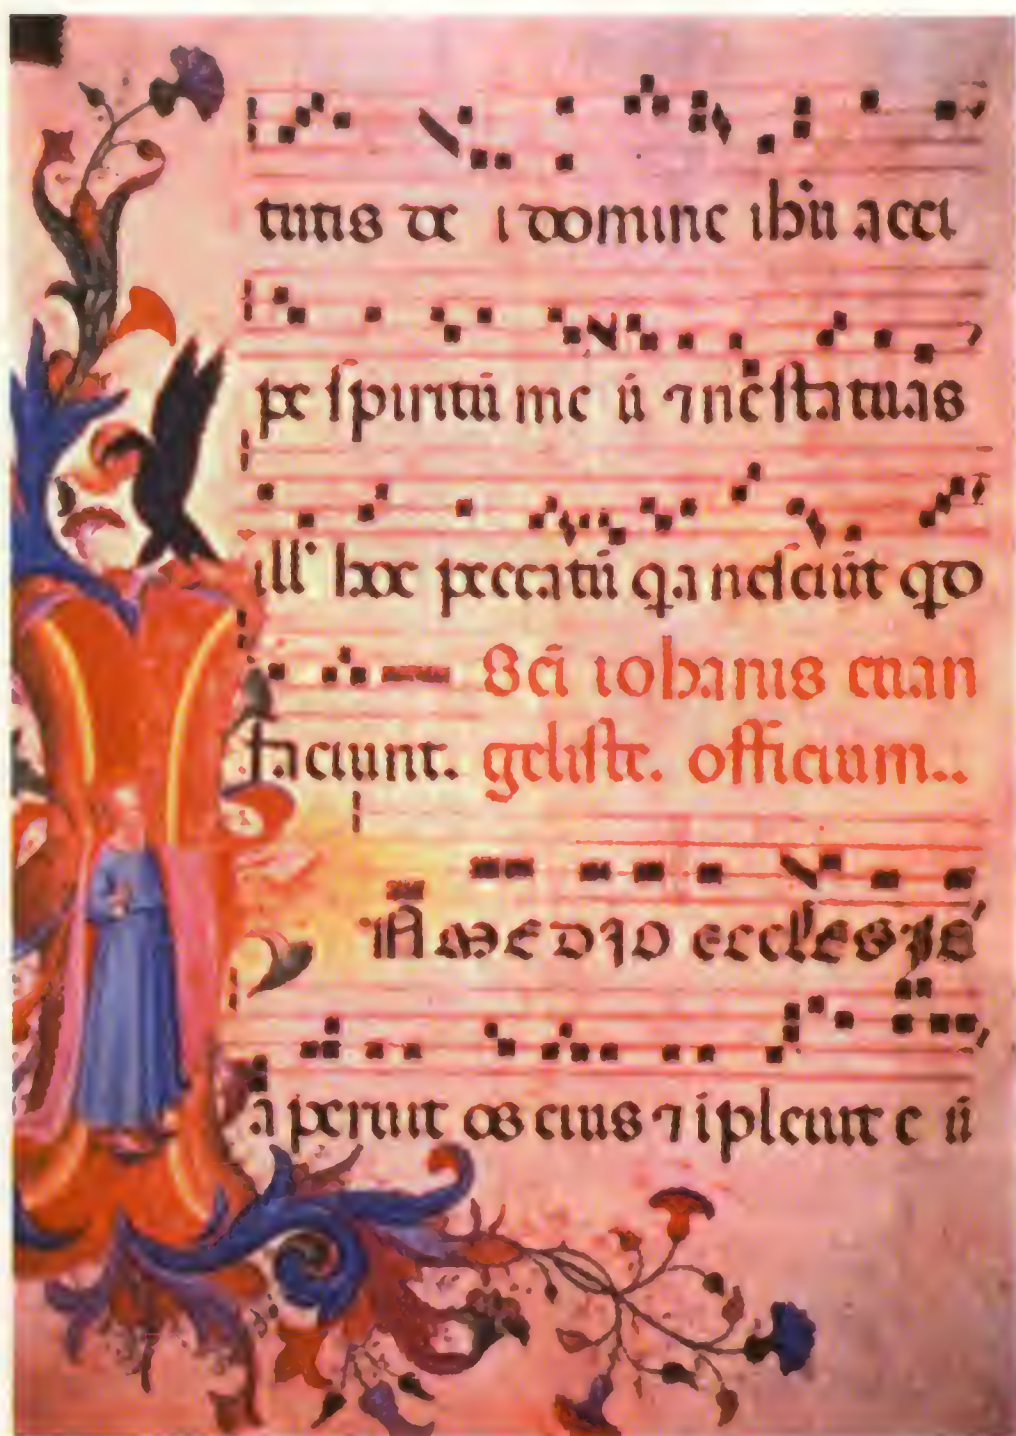 tutis de i domine ihū acci
pe spiritū me ū ⁊ ne statuas
ill' hoc peccatū q̨a nesciūt qd
faciunt. Scī iohanis euan
geliste. officium..
IN MEDIO ECCLESIE
aperuit os eius ⁊ īpleuit e ū